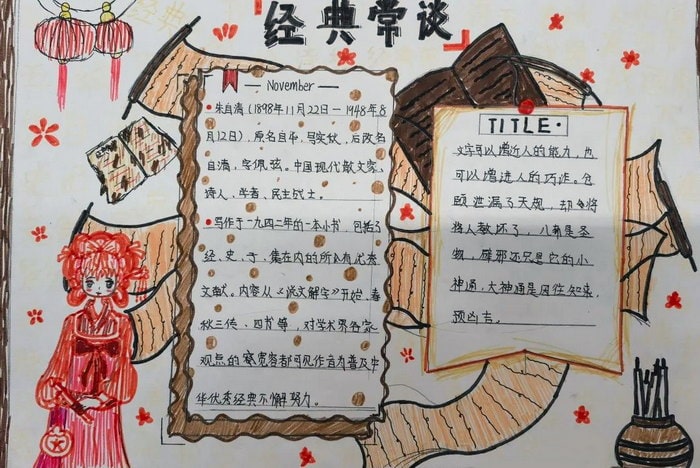 经典常谈
November
朱自清(1898年11月22日一1948年8
月12日),原名自华,号实秋,后改名
自清,字佩弦。中国现代散文家、
诗人、学者、民主战士。
写作于一九四二年的一本小书,包括了
经、史、子、集在内的所有优秀
文献。内容从《说文解字》开始,春
秋三传、四书等,对学术界各家
观点的宽容都可见作者为普及中
华优秀经典不懈努力。
TITLE·
文字可以增近人的能力,也
可以增进人的巧诈。仓
颉泄漏了天机,却将
将人教坏了,八卦是圣
物,辟邪还只是它的小
神通,大神通是因往知来,
预凶吉。